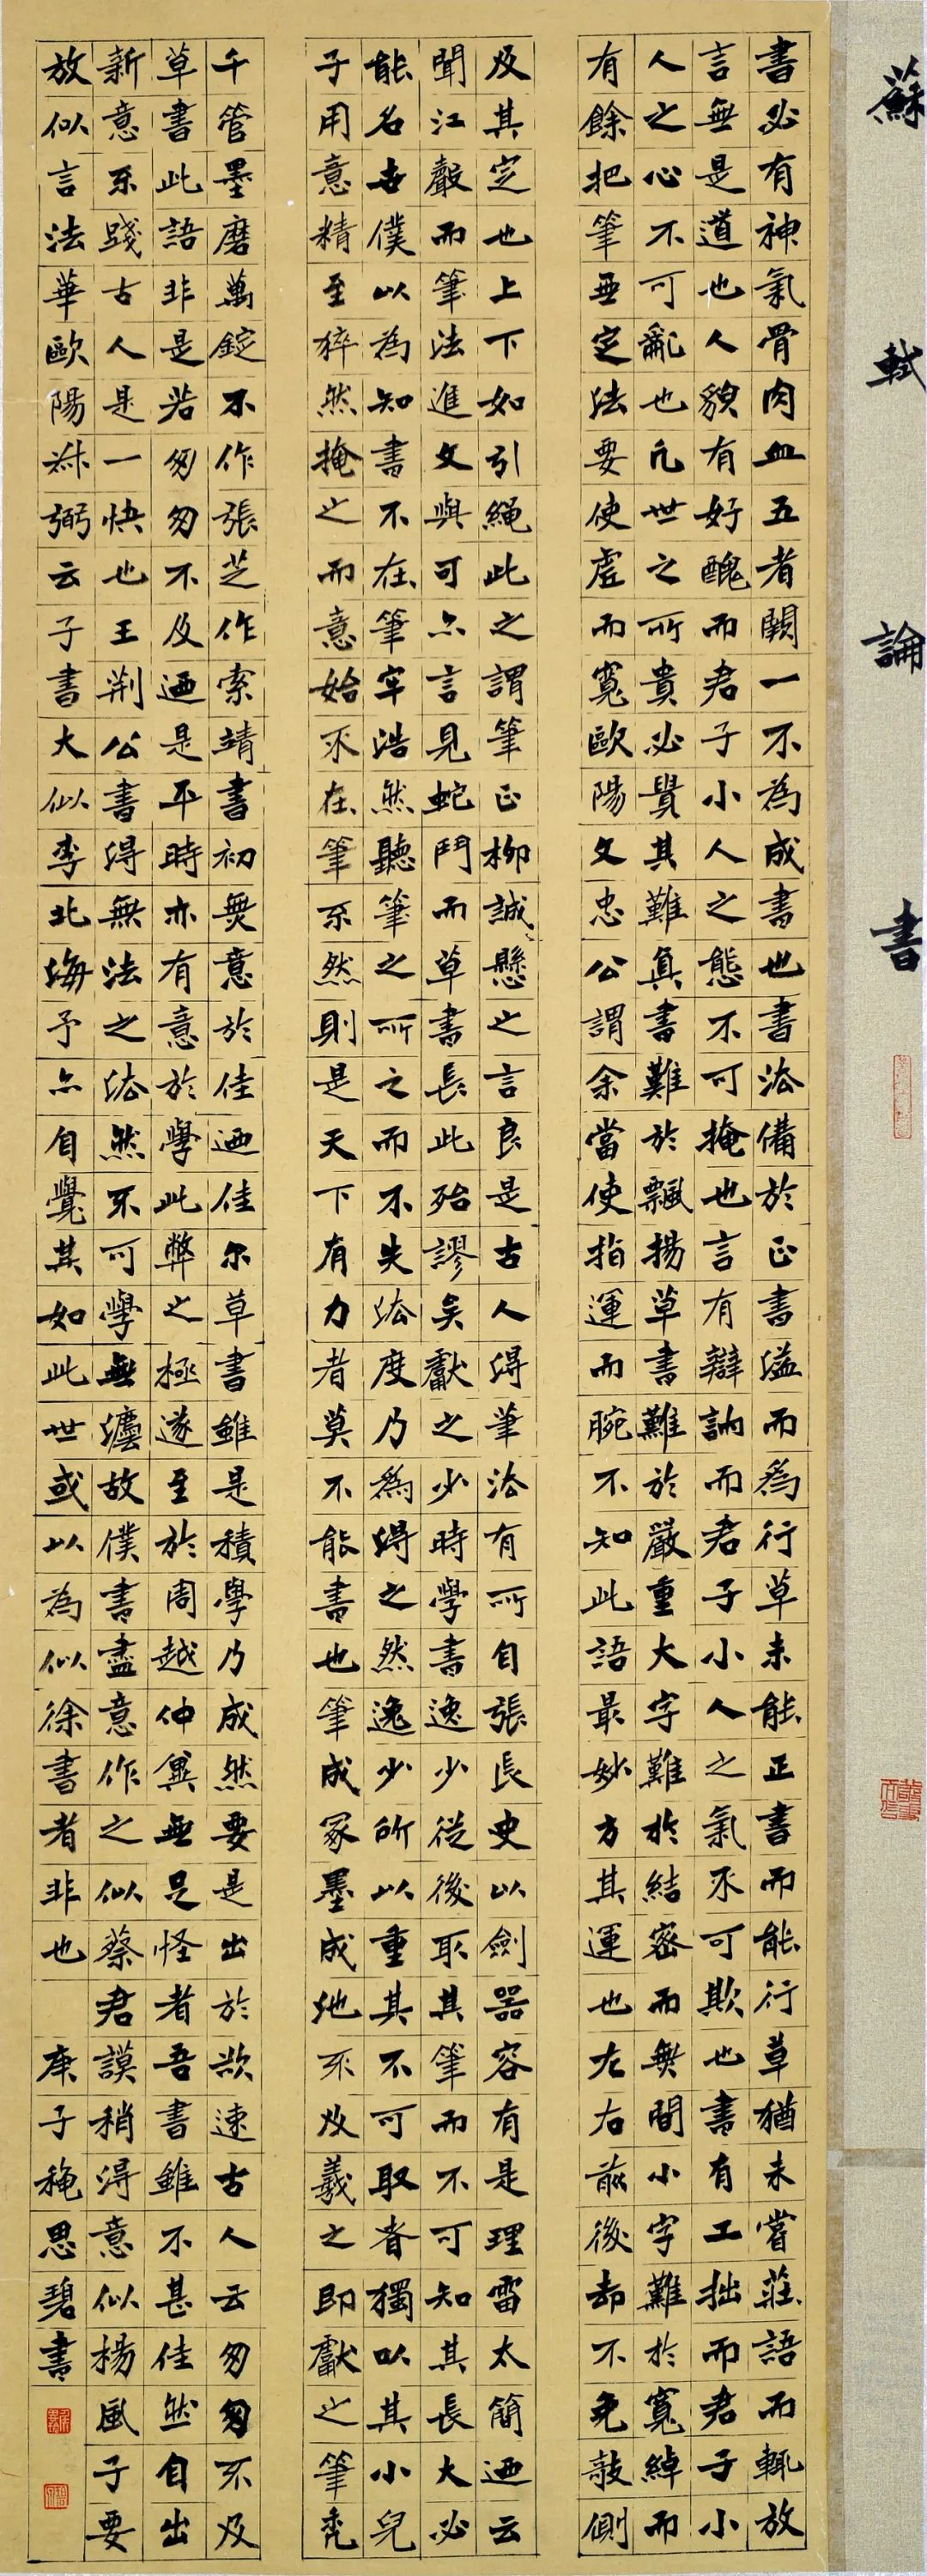 蘇軾論書
書必有神氣骨肉血五者闕一不為成書也書法備於正書溢而為行草未能正書而能行草猶未嘗莊語而輒放
言無是道也人貌有好醜而君子小人之態不可掩也言有辯訥而君子小人之氣不可欺也書有工拙而君子小
人之心不可亂也凡世之所貴必貴其難真書難於飄揚草書難於嚴重大字難於結密而無間小字難於寬綽而
有餘把筆無定法要使虛而寬歐陽文忠公謂余當使指運而腕不知此語最妙方其運也左右前後却不免敧側
及其定也上下如引繩此之謂筆正柳誠懸之言良是古人得筆法有所自張長史以劍器容有是理雷太簡迺云
聞江聲而筆法進文與可亦言見蛇鬥而草書長此殆謬矣獻之少時學書逸少從後取其筆而不可知其長大必
能名世僕以為知書不在筆牢浩然聽筆之所之而不失法度乃為得之然逸少所以重其不可取者獨以其小兒
子用意精至猝然掩之而意始不在筆不然則是天下有力者莫不能書也筆成冢墨成池不及羲之即獻之筆禿
千管墨磨萬錠不作張芝作索靖書初無意於佳迺佳尔草書雖是積學乃成然要是出於欲速古人云匆匆不及
草書此語非是若匆匆不及迺是平時亦有意於學此弊之極遂至於周越仲翼無足怪者吾書雖不甚佳然自出
新意不踐古人是一快也王荊公書得無法之法然不可學無灋故僕書盡意作之似蔡君謨稍得意似楊風子要
放似言法華歐陽叔弼云子書大似李北海予亦自覺其如此世或以為似徐書者非也 庚子穐思碧書